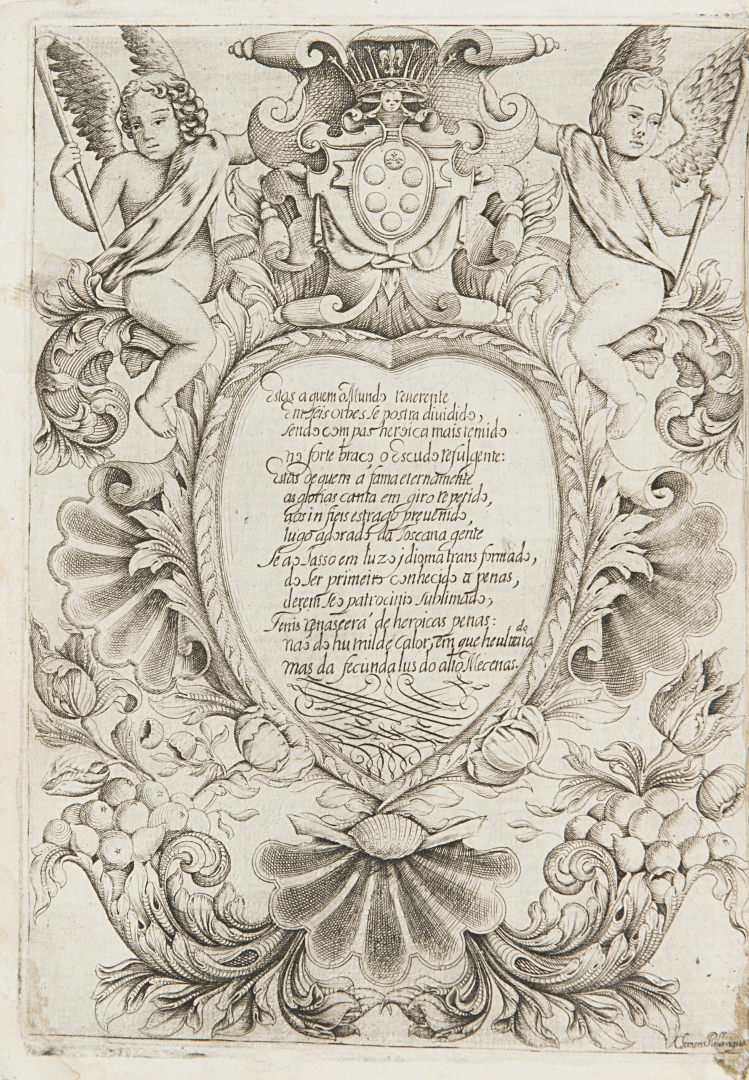 Estas a quem o Mundo reverente
em seis orbes se postra dividido,
sendo com pas heroica mais temido
no forte braço o Escudo refulgente:
Estas de quem a fama eternamente
as glorias canta em giro repetido,
aos infieis estrago prevenido,
jugo adorado da Toscana gente
Se ao Tasso em luzo idioma transformado,
do ser primeiro conhecido a penas,
derem seo patrocinio sublimado,
Fenis renaseera de heroicas penas:
nao do humilde Calor, em que he ultraiado
mas da fecunda lus do alto Mecenas.